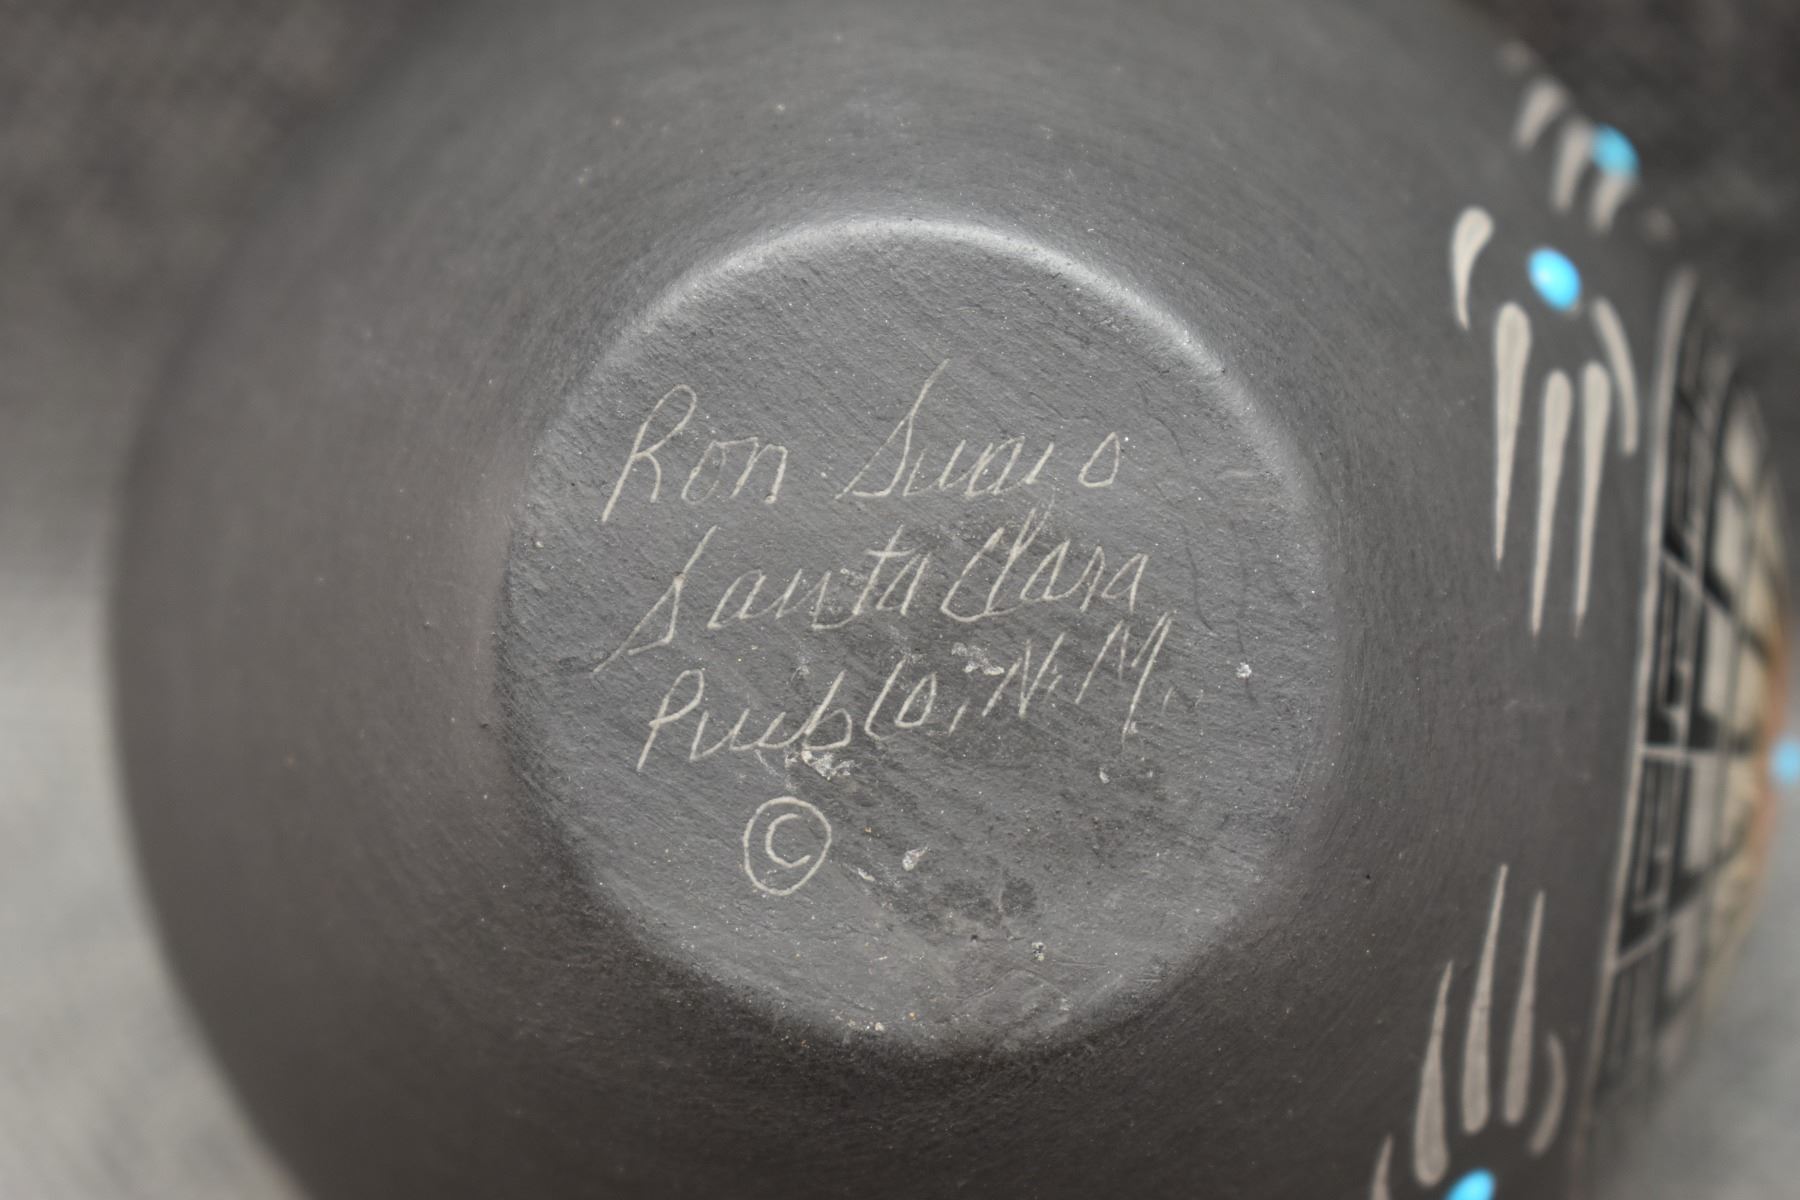 Ron Suazo
Santa Clara
Pueblo, N.M.
©